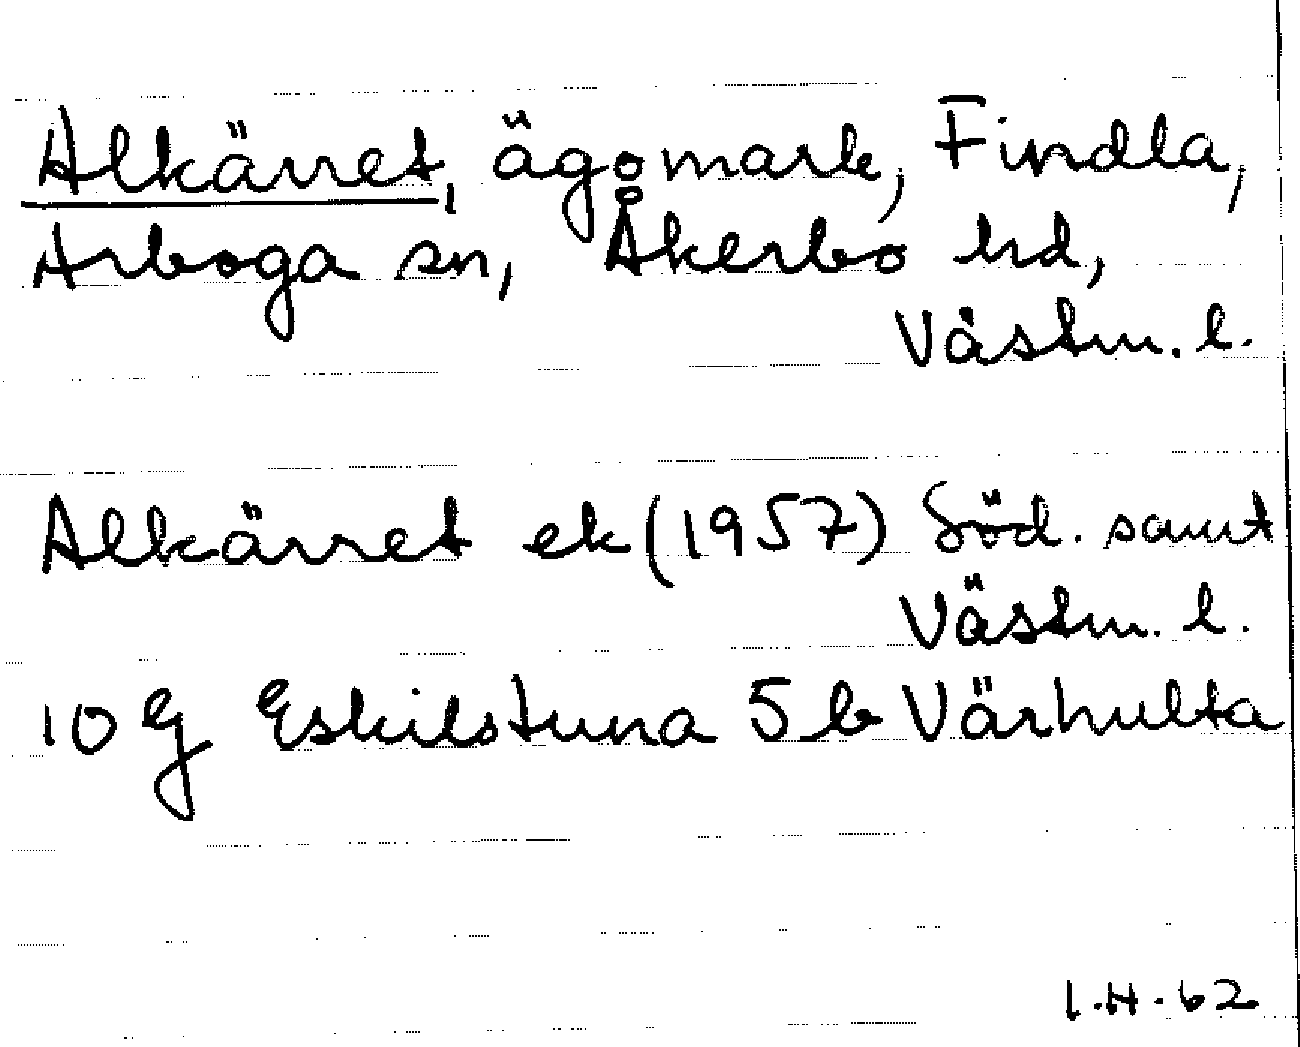 Alkärret, ägomark, Findla,
Arboga sn, Åkerbo hd,
Västm. l.
Alkärret ek (1957) Söd. samt
Västm. l.
10 G Eskilstuna 5 b Värhulta
I.H. 62